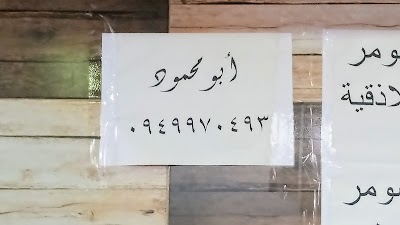 أبو محمود
٠٩٤٩٩٧٠٤٩٣
ومر
لاذقية
ومر